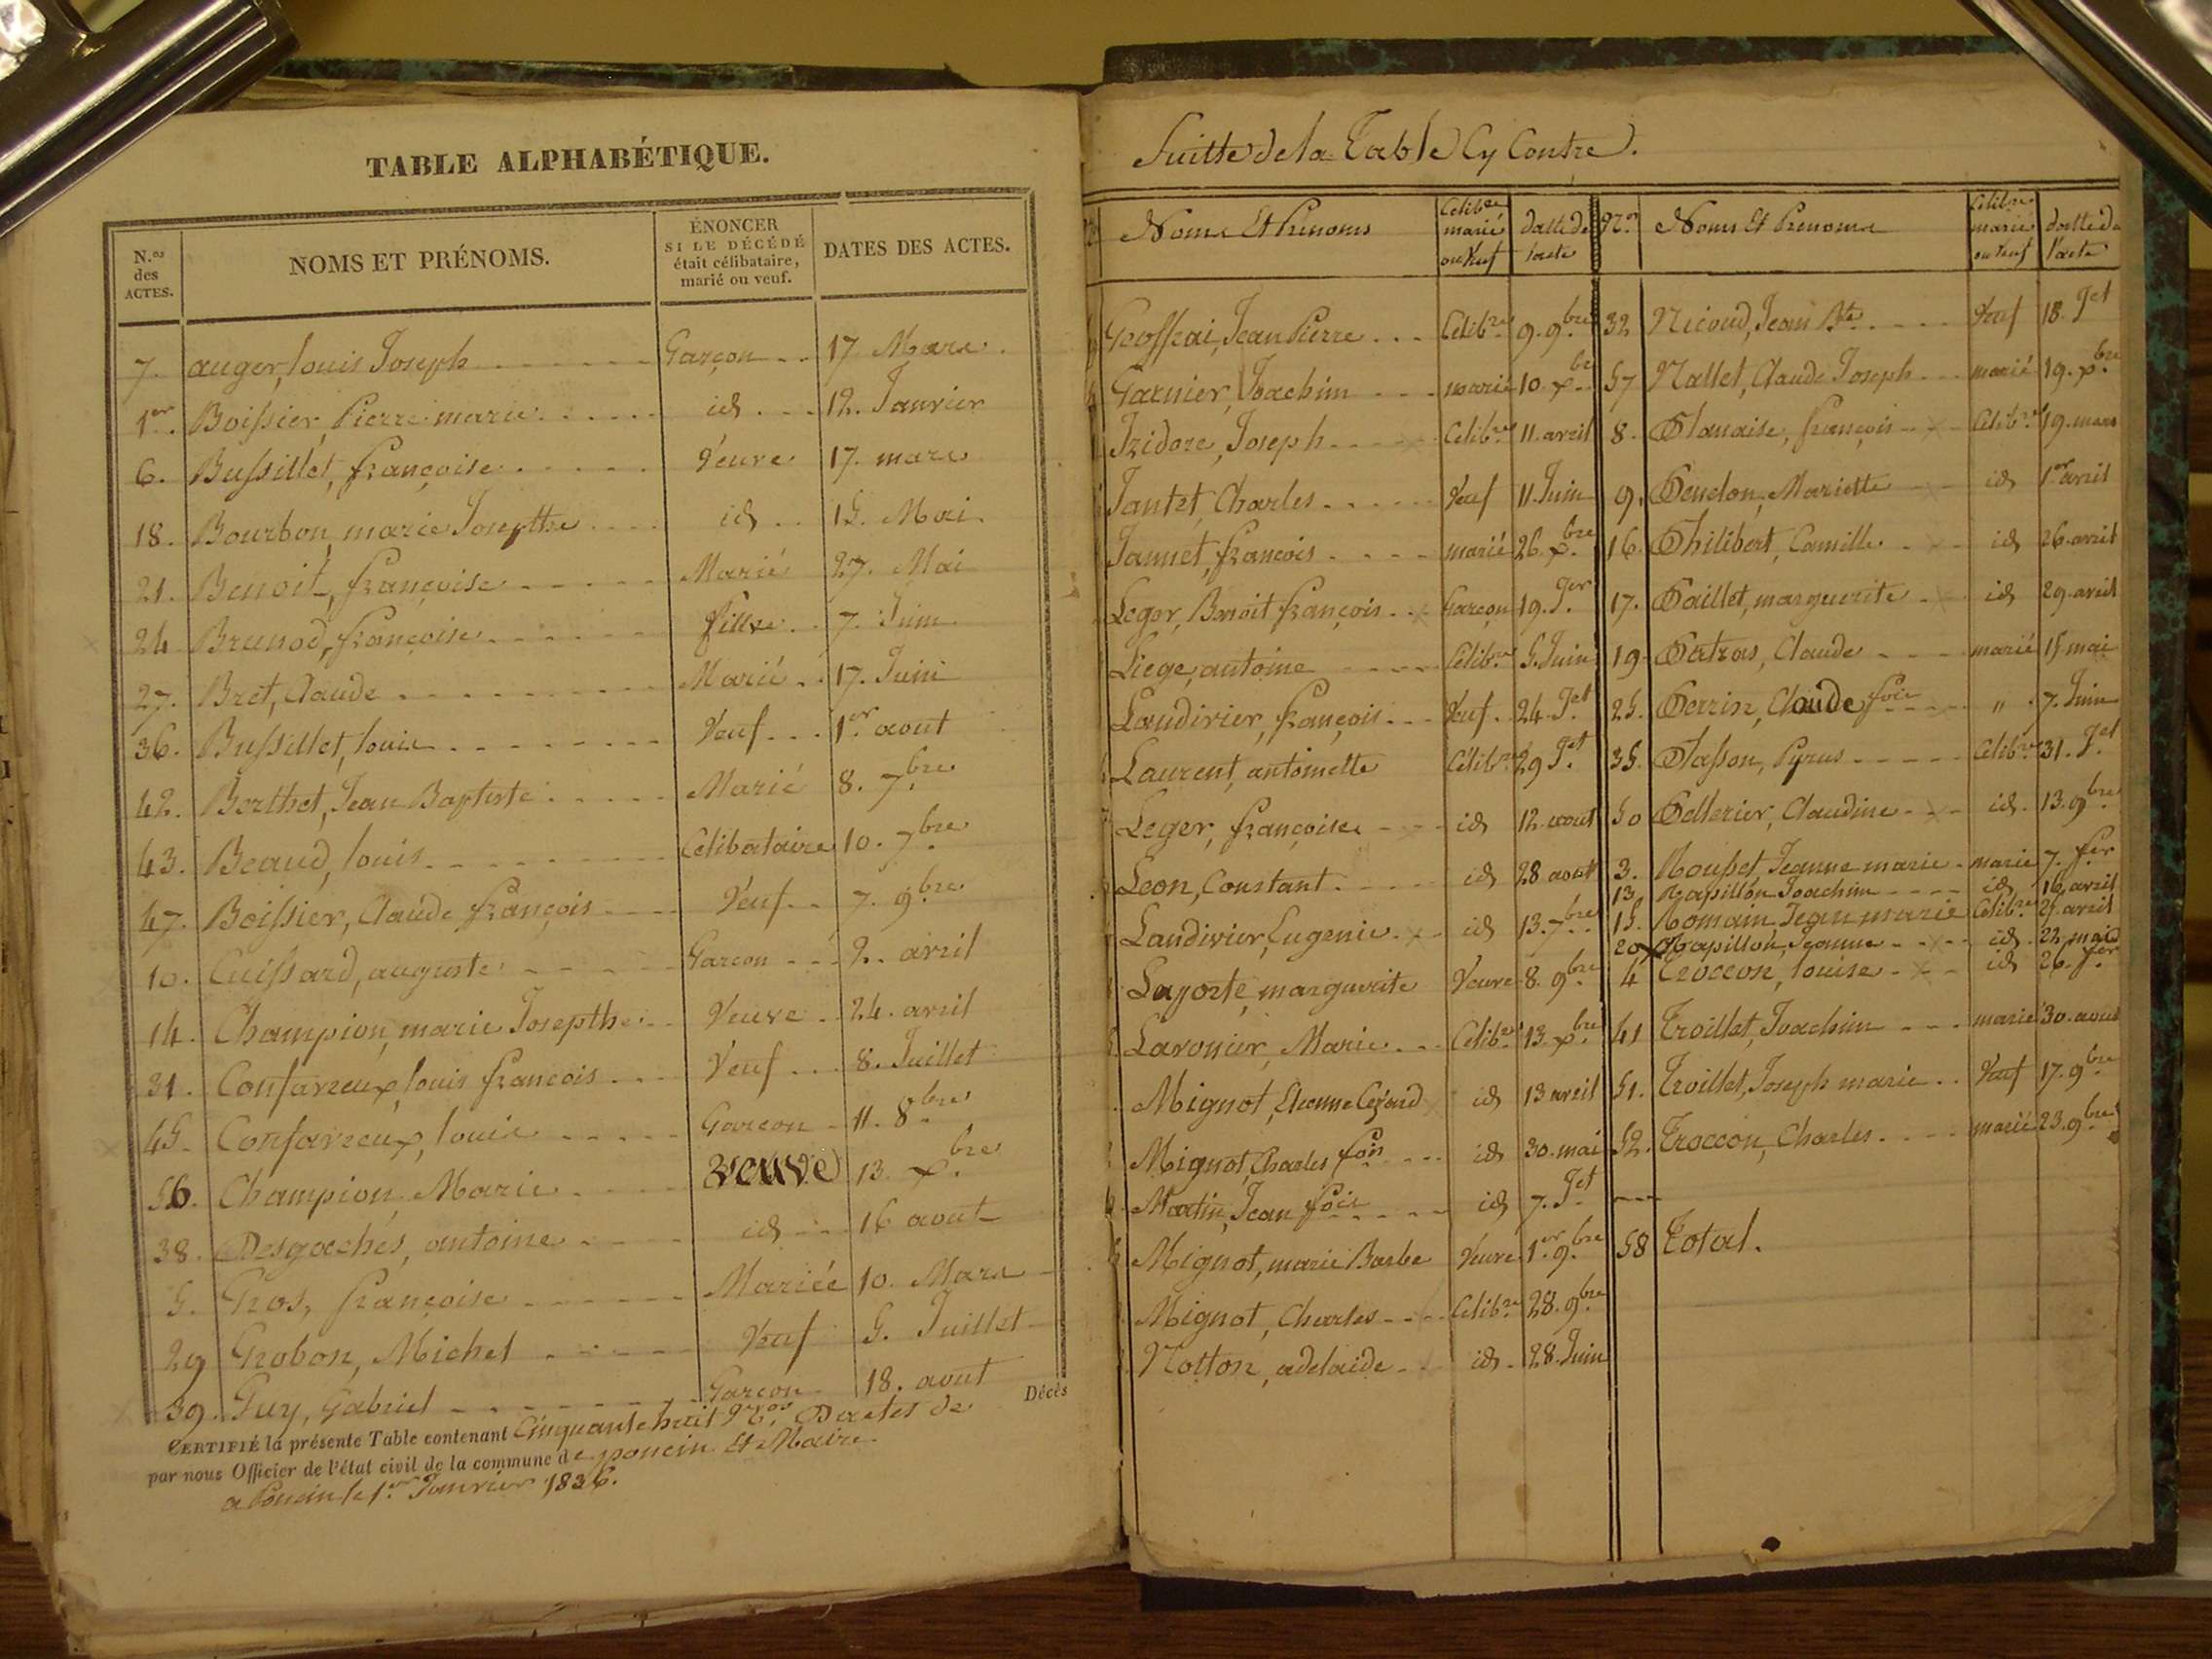 TABLE ALPHABÉTIQUE.
N.os des ACTES. NOMS ET PRÉNOMS. ÉNONCER SI LE DÉCÉDÉ était célibataire, marié ou veuf. DATES DES ACTES.
7. auger, louis Joseph Garçon 17 Mars.
1er. Boissier, Pierre marie id 12. Janvier
6. Bussillet, françoise Veuve 17. mars
18. Bourbon, marie Josepthe id 15. Mai
21. Benoit, françoise Marié 27. Mai
24 Brunod, françoise fille 7. Juin
27. Bret, Claude Marié 17. Juin
36. Bussillet, louis Veuf 1er aout
42. Berthet, Jean Baptiste Marié 8. 7bre
43. Beaud, louis Celibataire 10. 7bre
47. Boissier, Claude françois Veuf 7. 9bre
10. Cuissard, auguste Garcon 2. avril
14. Champion, marie Josepthe Veuve 24. avril
31. Confavreux, louis francois Veuf 8. Juillet
45. Confavreux, louis Garcon 11. 8bre
56. Champion, Marie veuve 13. xbre
38. Desgachés, antoine id 16 aout
5. Gros, françoise Mariée 10. Mars
29 Grobon, Michel Veuf 5. Juillet
39. Guy, Gabriel Garcon 18. aout
CERTIFIÉ la présente Table contenant Cinquante huit Dactes de Décès
par nous Officier de l'état civil de la commune de poncin Et Maire
a Poncin le 1er Janvier 1836.
Suitte de la Table Cy Contre.
Noms Et Prenoms Celibre marié ou Veuf datte de lacte
Geoffrai, Jean Pierre Celibre 9. 9bre
Garnier, Joachim marié 10. xbre
Izidore, Joseph Celibre 11. avril
Jantet, Charles Veuf 11. Juin
Jannet, francois marié 26. xbre
Leger, Benoit françois Garcon 19. Jer
Liege, antoine Celibre 5. Juin
Laudivier, françois Veuf 24. Jet
Laurent, antoinette Célibre 29 Jet
Leger, françoise id 12. aout
Leon, Constant id 28 aout
Laudivier, Eugenie id 13. 7bre
Laporte, marguerite Veuve 8. 9bre
Lavonier, Marie Celibre 13. xbre
Mignot, Etienne Cezard id 13 avril
Mignot, Charles fois id 30. mai
Martin, Jean fois id 7. Jet
Mignot, marie Barbe Veuve 1er 9bre
Mignot, Charles Celibre 28. 9bre
Notton, adelaide id 28. Juin
Nos Noms Et Prenoms Celibre marié ou Veuf datte de l'acte
32 Nicoud, Jean Bte Veuf 18. Jet
57 Nallet, Claude Joseph marié 19. xbre
8. Planaise, françois Celibre 19. mars
9. Pendon, Mariette id 1er avril
16. Philibert, Camille id 26. avril
17. Paillet, marguerite id 29. avril
19 Patras, Claude marié 15 mai
25. Perrin, Claude fois " 7. Juin
35. Plasson, Pyrus Celibre 31. Jet
50 Pellerier, Claudine id 13. 9bre
3. Rousset, Jeanne marie marie 7. fer
13. Rapillon, Joachim id 16. avril
15. Romain, Jean marie Celibre 25. avril
20 Rapillon, Jeanne id 22. mai
4 Troccon, louise id 26. fer
41 Troillet, Joachim marié 30. aout
51. Troillet, Joseph marie Veuf 17. 9bre
52. Troccon, Charles marié 23. 9bre
58 Total.